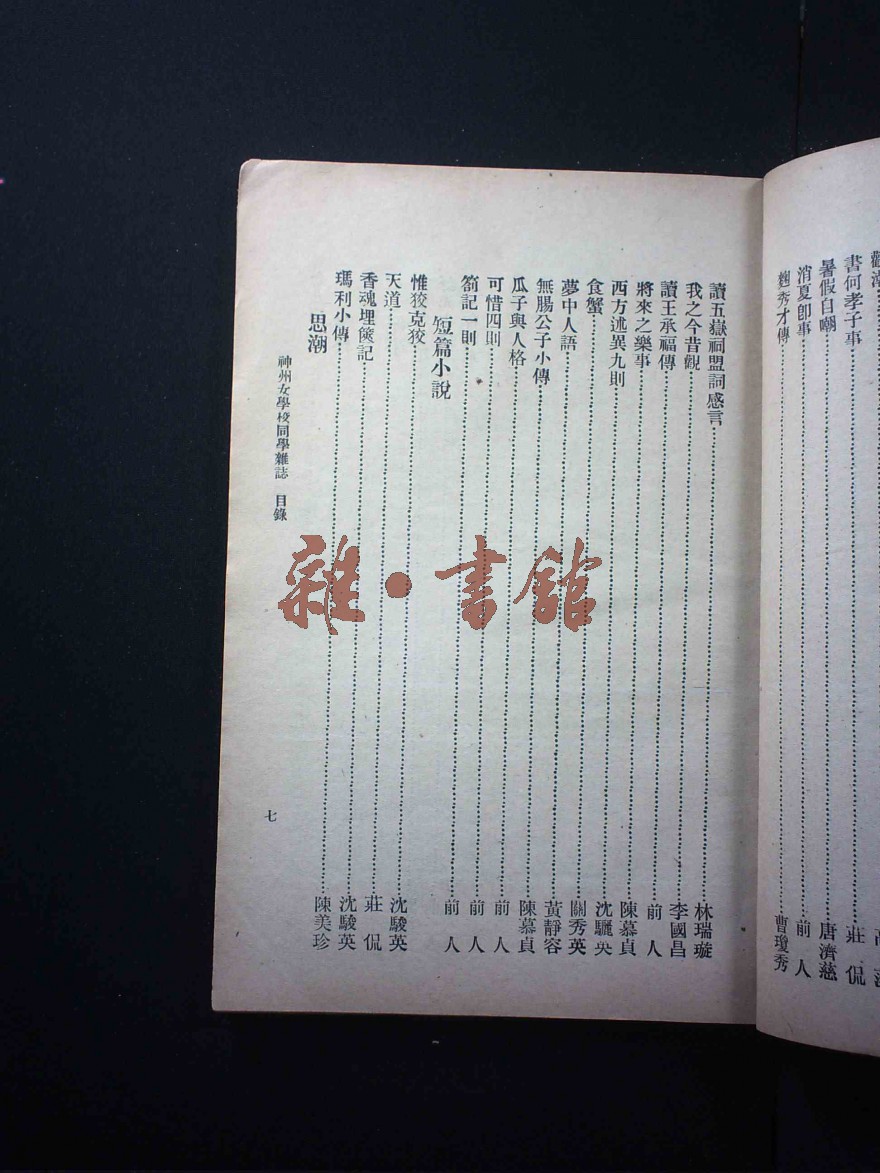 書何孝子事 莊侃
暑假自嘲 唐濟慈
消夏卽事 前人
麴秀才傳 曹瓊秀
讀五嶽祠盟詞感言 林瑞璇
我之今昔觀 李國昌
讀王承福傳 前人
將來之樂事 陳慕貞
西方述異九則 沈驪英
食蟹 關秀英
夢中人語 黃靜容
無腸公子小傳 陳慕貞
瓜子與人格 前人
可惜四則 前人
箚記一則 前人
短篇小說
惟狡克狡 沈駿英
天道 莊侃
香魂埋篋記 沈駿英
瑪利小傳 陳美珍
思潮
神州女學校同學雜誌 目錄
七
雜·書館